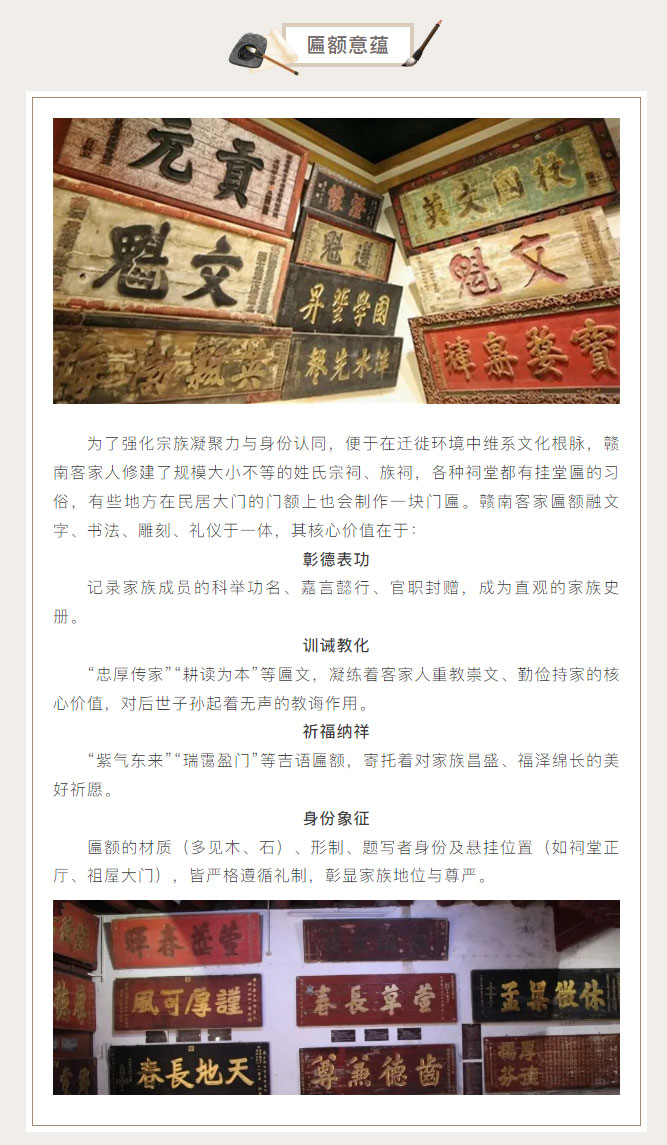 匾额意蕴
元貢
魁文
魁選
昇豋學國
英文國
魁文
為了强化宗族凝聚力与身份认同，便于在迁徙环境中维系文化根脉，赣
南客家人修建了规模大小不等的姓氏宗祠、族祠，各种祠堂都有挂堂匾的习
俗，有些地方在民居大门的门额上也会制作一块门匾。赣南客家匾额融文
字、书法、雕刻、礼仪于一体，其核心价值在于：
彰德表功
记录家族成员的科举功名、嘉言懿行、官职封赠，成为直观的家族史
册。
训诫教化
“忠厚传家”“耕读为本”等匾文，凝练着客家人重教崇文、勤俭持家的核
心价值，对后世子孙起着无声的教诲作用。
祈福纳祥
“紫气东来”“瑞霭盈门”等吉语匾额，寄托着对家族昌盛、福泽绵长的美
好祈愿。
身份象征
匾额的材质（多见木、石）、形制、题写者身份及悬挂位置（如祠堂正
厅、祖屋大门），皆严格遵循礼制，彰显家族地位与尊严。
暉春蔭萱
風可厚謹
春長草萱
孟梁徽休
春長地天
尊兼德齒